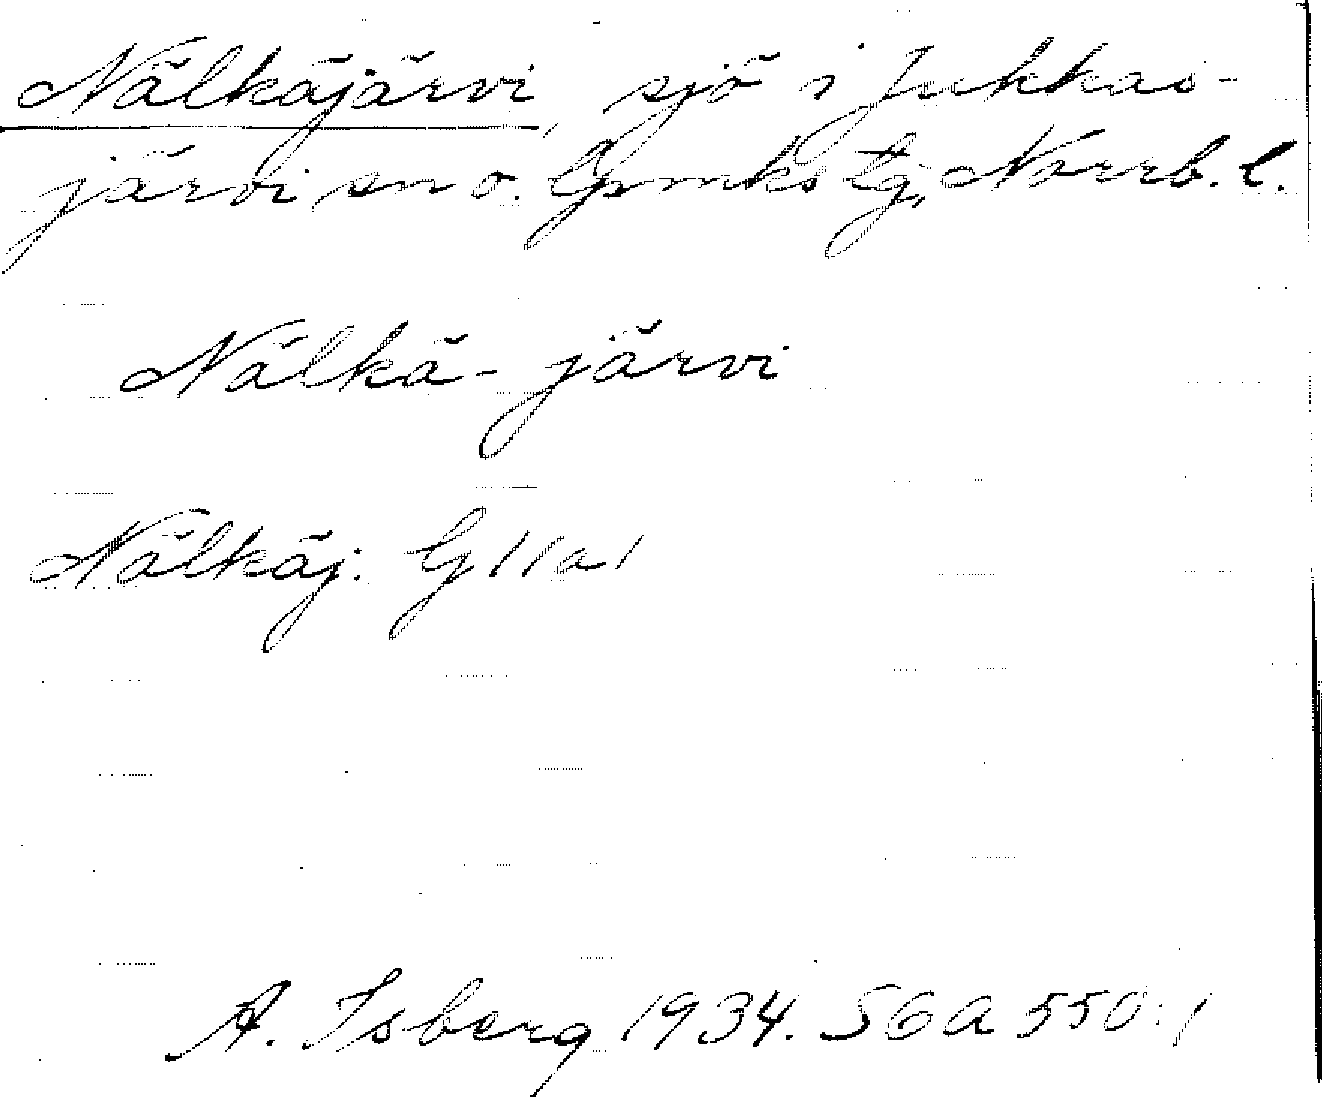 Nälkäjärvi, sjö i Jukkas-
järvi sn o. Gmks tg, Norrb. l.
Nälkä-järvi
Nälkäj: G 11 a 1
A. Isberg 1934. SGA 550:1